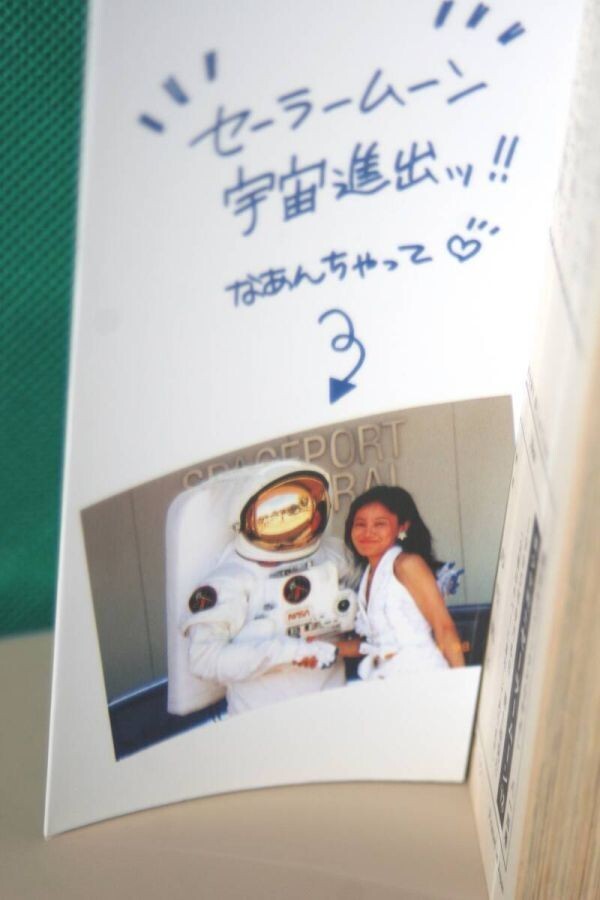 セーラームーン
宇宙進出ッ!!
なあんちゃって♡
SPACEPORT
NASA